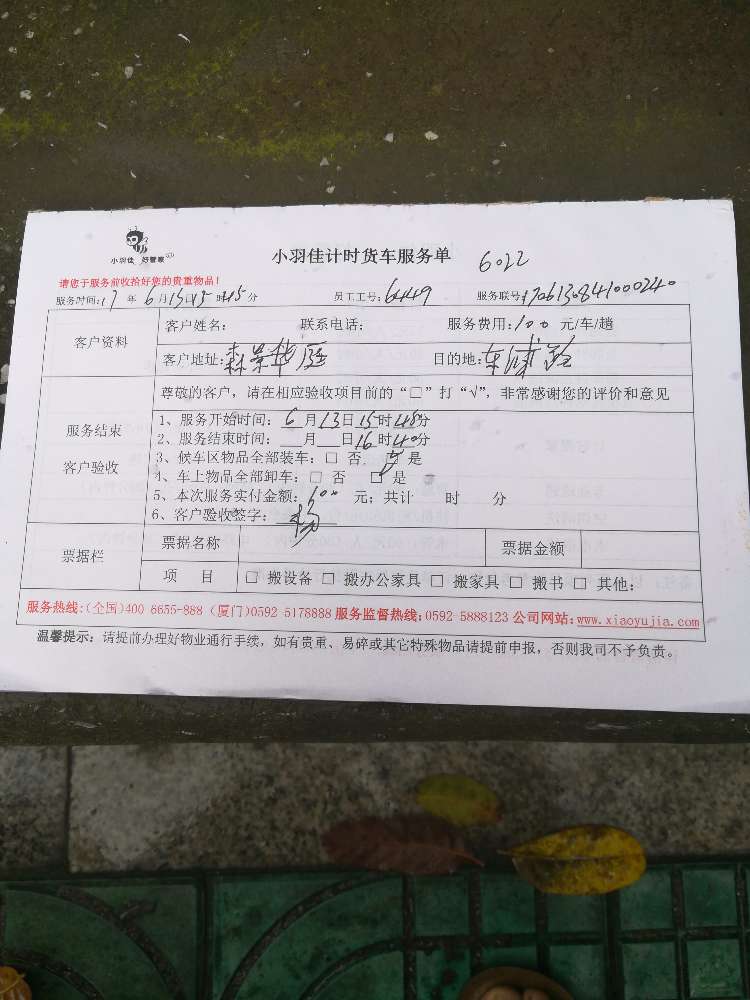 小羽佳 好管家
小羽佳计时货车服务单 6022
请您于服务前收拾好您的贵重物品！
服务时间：17 年 6 月 13 日 15 时 45 分 员工工号：6449 服务联号：1706130841000240
客户资料
客户姓名： 联系电话： 服务费用：100 元/车/趟
客户地址：森景华庭 目的地：东浦路
服务结束
客户验收
尊敬的客户，请在相应验收项目前的“□”打“√”，非常感谢您的评价和意见
1、服务开始时间：6 月 13 日 15 时 48 分
2、服务结束时间：__月__日 16 时 40 分
3、候车区物品全部装车：□ 否 □ 是
4、车上物品全部卸车：□ 否 □ 是
5、本次服务实付金额：100 元；共计 时 分
6、客户验收签字：杨
票据栏
票据名称 票据金额
项 目 □ 搬设备 □ 搬办公家具 □ 搬家具 □ 搬书 □ 其他：
服务热线：(全国)400 6655-888 (厦门)0592 5178888 服务监督热线：0592-5888123 公司网站：www.xiaoyujia.com
温馨提示：请提前办理好物业通行手续，如有贵重、易碎或其它特殊物品请提前申报，否则我司不予负责。